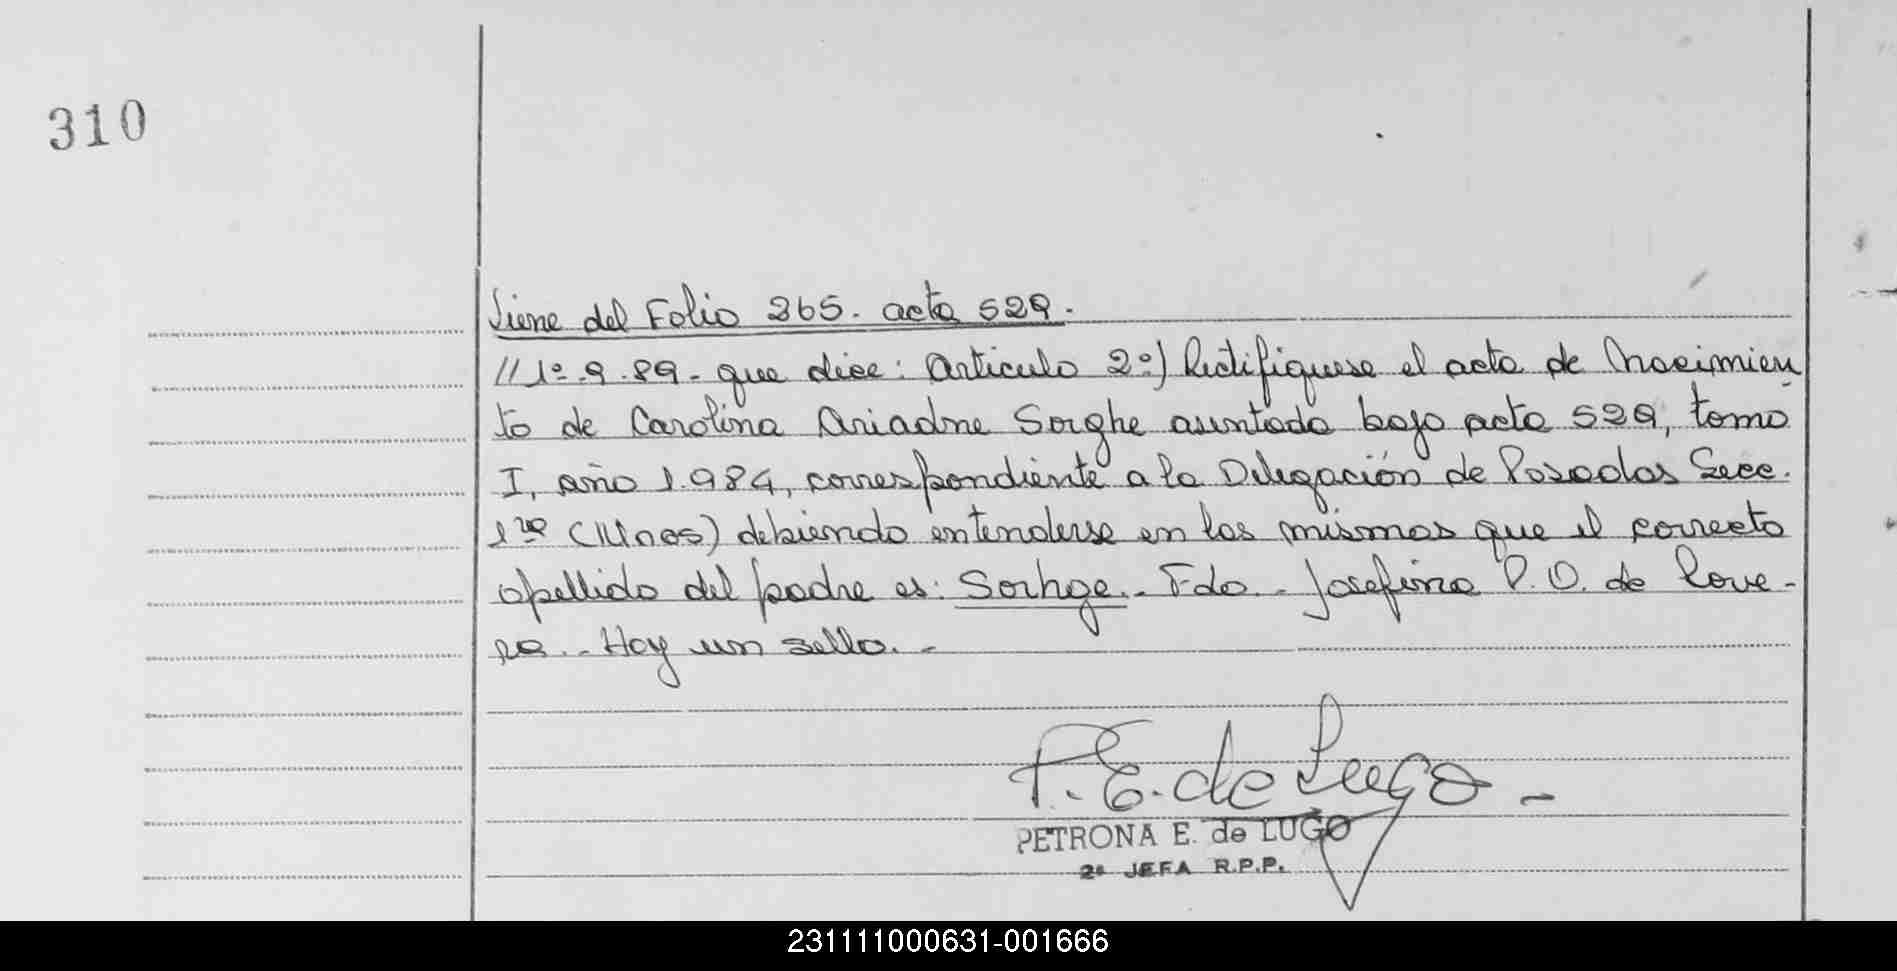 310
Viene del Folio 265. acta 529.
//1º.9.89.- que dice: Artículo 2º) Rectifíquese el acta de Nacimien
to de Carolina Ariadne Sorghe asentada bajo acta 529, tomo
I, año 1.984, correspondiente a la Delegación de Posadas Secc.
1ra (Mnes) debiendo entenderse en las mismas que el correcto
apellido del padre es: Sorhge.- Fdo.- Josefina P. O. de Rove-
ra.- Hay un sello.-
P. E. de Lugo -
PETRONA E. de LUGO
2ª JEFA R.P.P.
231111000631-001666